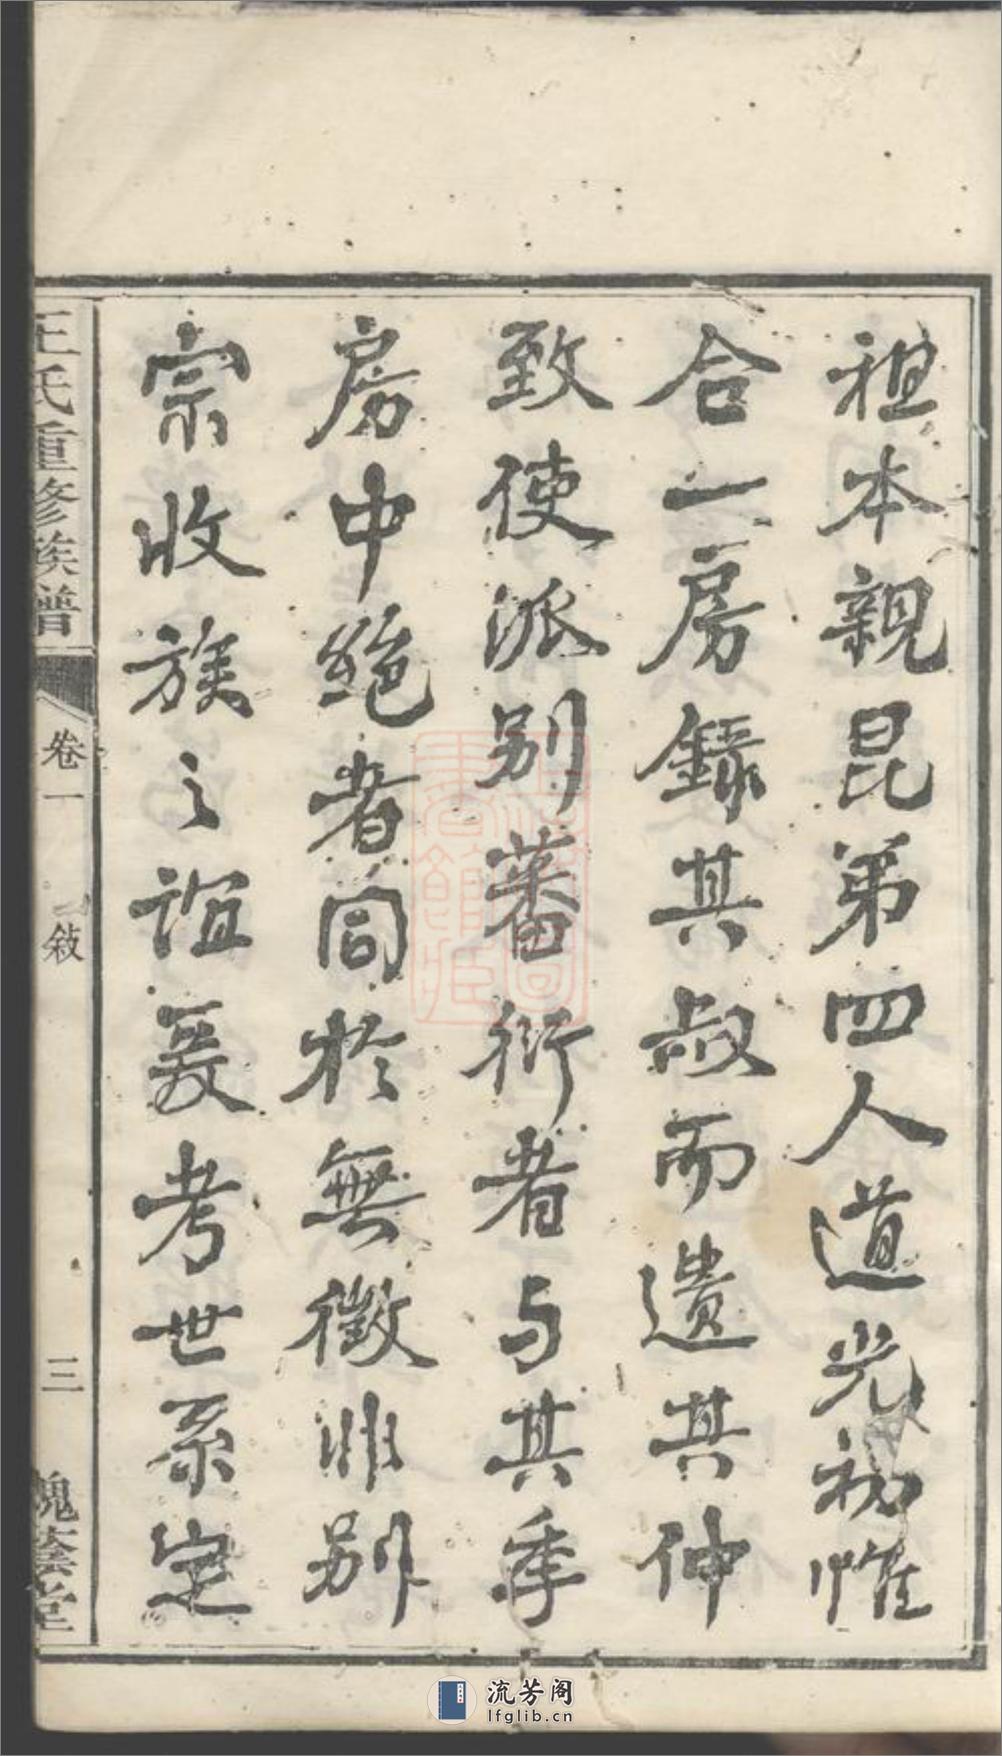 祖本親昆弟四人道光初惟
合一房錄其叔而遺其仲
致使派別蕃衍者与其季
房中絶者同於無徵非別
宗收族之誼爰考世系定
王氏重修族譜
卷一
敍
三
槐蔭堂
流芳阁
lfglib.cn